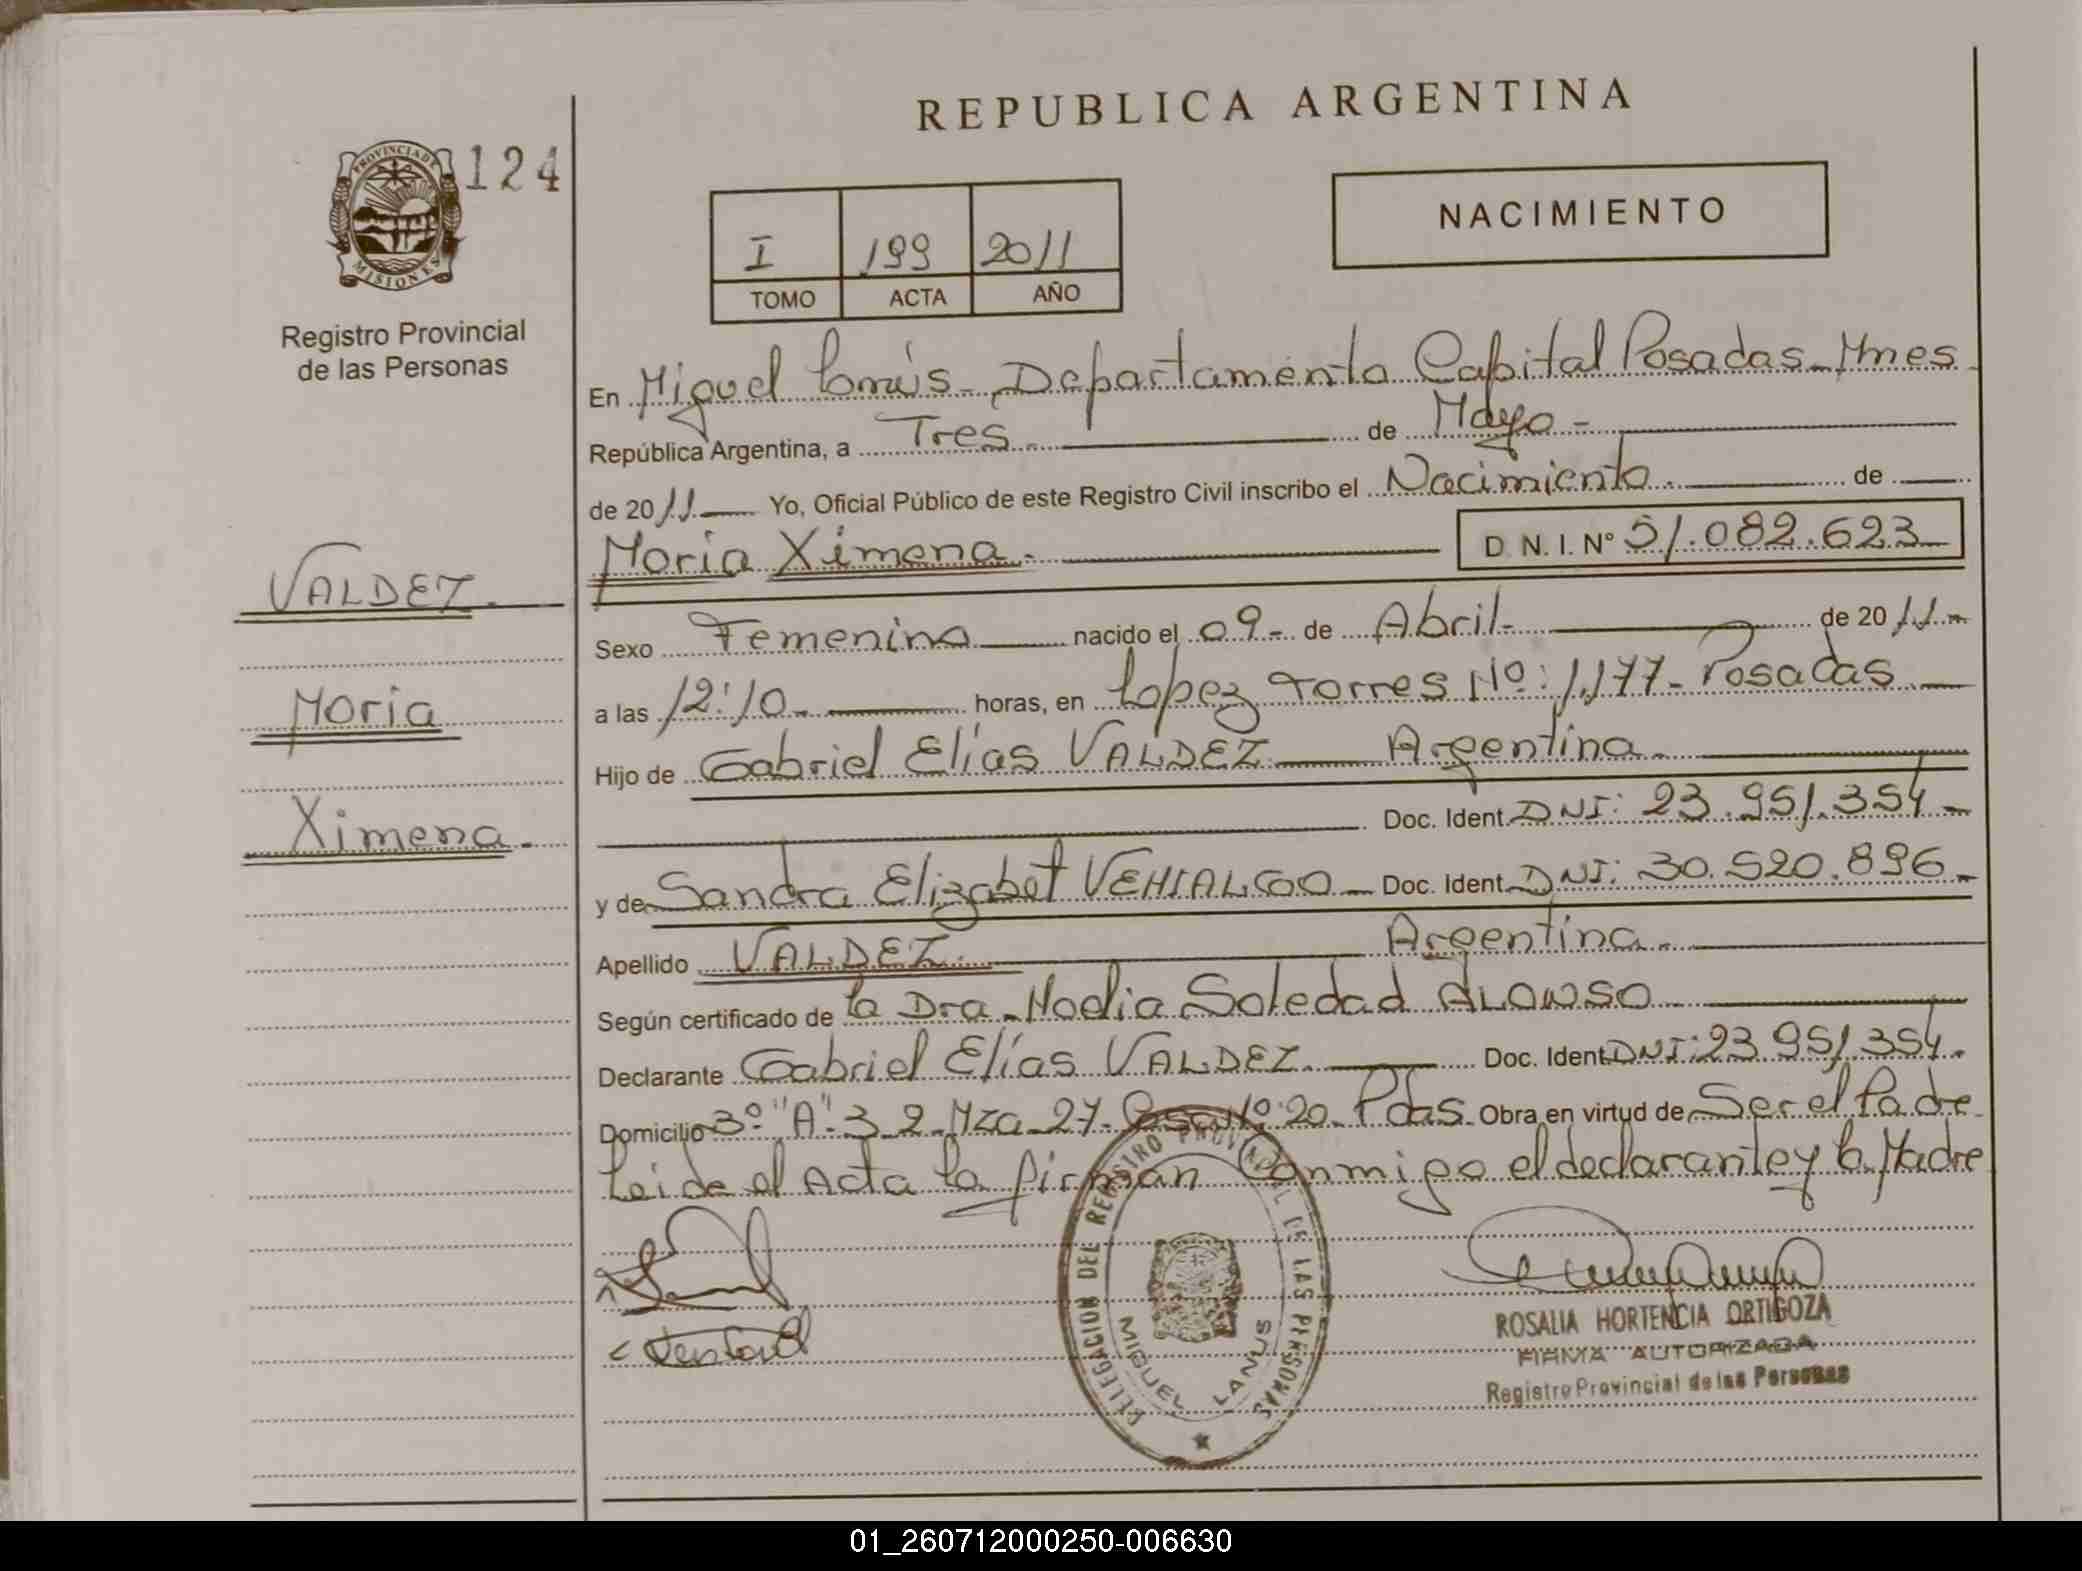 REPUBLICA ARGENTINA
PROVINCIA DE
MISIONES
124
Registro Provincial
de las Personas
NACIMIENTO
I 199 2011
TOMO ACTA AÑO
En Miguel Lanús - Departamento Capital Posadas - Mnes
República Argentina, a Tres de Mayo -
de 2011 Yo, Oficial Público de este Registro Civil inscribo el Nacimiento de
Moria Ximena. - D N. I. Nº 51.082.623
VALDEZ.
Moria
Ximena. -
Sexo Femenino nacido el 09 - de Abril - de 2011
a las 12:10 - horas, en Lopez Torres Nº: 1.177 - Posadas
Hijo de Gabriel Elías VALDEZ Argentina
Doc. Ident. DNI: 23.951.354 -
y de Sandra Elizabet VEHIALGOO - Doc. Ident. DNI: 30.520.896 -
Apellido VALDEZ. Argentina
Según certificado de la Dra. Noelia Soledad ALONSO
Declarante Gabriel Elías VALDEZ. Doc. Ident. DNI: 23.951.354.
Domicilio 3º "A" 3 2 Mza 27 Casa Nº 20 - Pdas. Obra en virtud de Ser el Padre
Leida el Acta la firman Conmigo el declarante y la Madre
DELEGACION DEL REGISTRO PROVINCIAL DE LAS PERSONAS
MIGUEL LANUS
ROSALIA HORTENCIA ORTIGOZA
FIRMA AUTORIZADA
Registro Provincial de las Personas
01_260712000250-006630